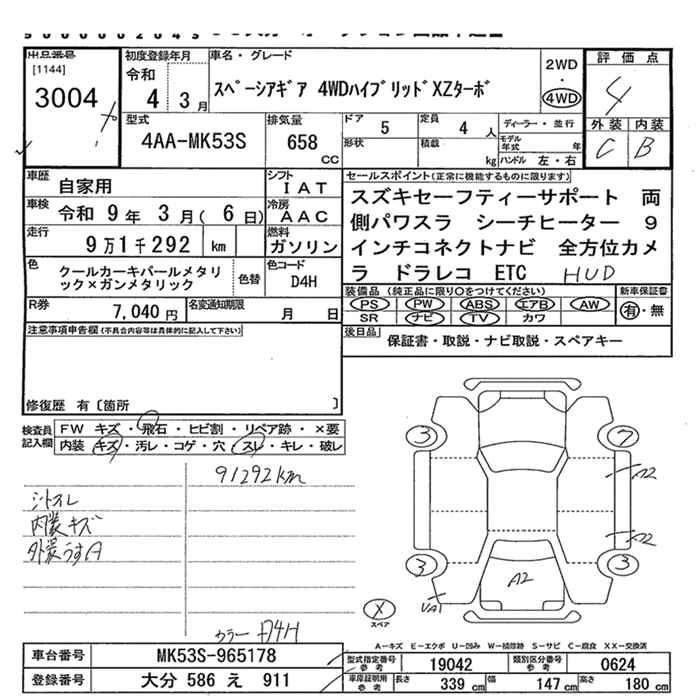 出品番号
[1144]
3004
初度登録年月
令和
4 3月
車名・グレード
スペーシアギア 4WDハイブリッドXZターボ
2WD
・
4WD
評価点
4
外装 内装
C B
型式
4AA-MK53S
排気量
658
CC
ドア
5
定員
4 人
ディーラー・並行
形状
積載
kg
モデル年式 年
ハンドル 左・右
車歴
自家用
シフト
IAT
車検
令和 9年 3月( 6日)
冷房
AAC
走行
9万1千292 km
燃料
ガソリン
色
クールカーキパールメタリ
ック×ガンメタリック
色替
色コード
D4H
R券
7,040円
名変通知期限
月 日
セールスポイント(正常に機能するものに限ります)
スズキセーフティーサポート 両
側パワスラ シーチヒーター 9
インチコネクトナビ 全方位カメ
ラ ドラレコ ETC HUD
装備品(純正品に限り○をつけてください)
PS PW ABS エアB AW
SR ナビ TV カワ
新車保証書
有・無
後日品
保証書・取説・ナビ取説・スペアキー
注意事項申告欄(不具合内容等は具体的に記入して下さい)
修復歴 有〔箇所 〕
検査員
記入欄
FW キズ・飛石・ヒビ割・リペア跡・×要
内装 キズ・汚レ・コゲ・穴・スレ・キレ・破レ
91292km
シートスレ
内装キズ
外装うすA
カラー D4H
3
7
A2
A2
3
3
A2
UA1
X
スペア
A-キズ E-エクボ U-凹み W-補修跡 S-サビ C-腐食 XX-交換済
車台番号
MK53S-965178
登録番号
大分 586 え 911
型式指定番号
参考
19042
類別区分番号
参考
0624
車庫証明用
参考
長さ 339 cm
幅 147 cm
高さ 180 cm